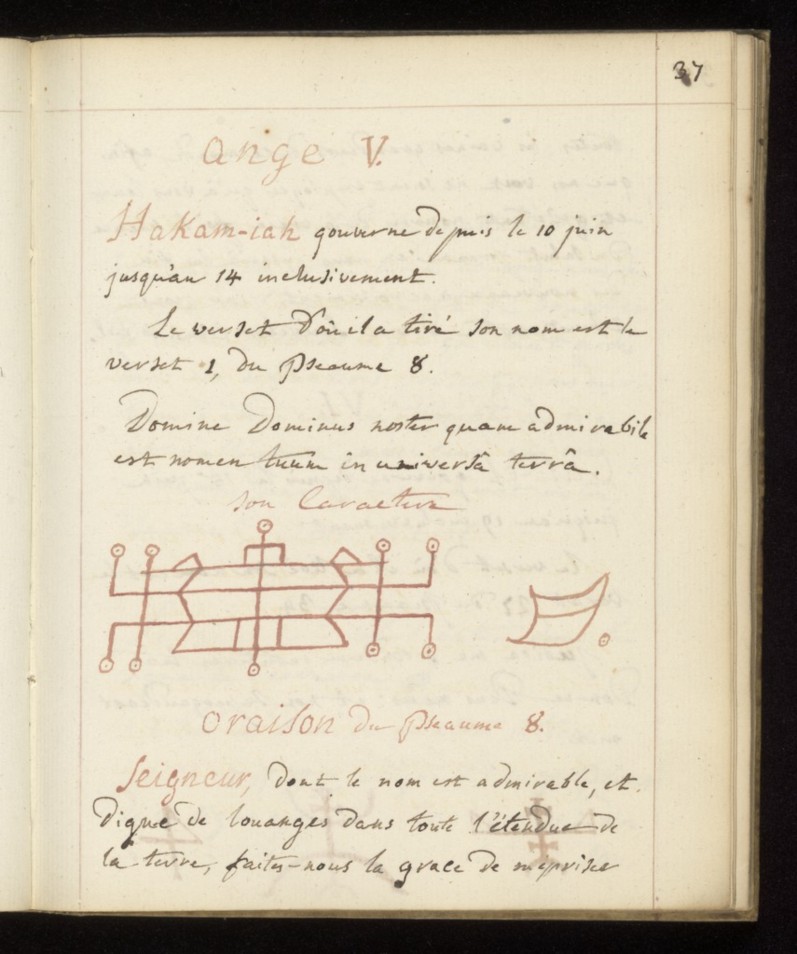 37
Ange V.
Hakam-iah gouverne depuis le 10 juin
jusqu'au 14 inclusivement.
Le verset d'où il a tiré son nom est le
verset 1, du Pseaume 8.
Domine Dominus noster quam admirabile
est nomen tuum in universâ terrâ.
son Caractere
Oraison du Pseaume 8.
Seigneur, dont le nom est admirable, et
digne de louanges dans toute l'étendue de
la terre, faites-nous la grace de mepriser